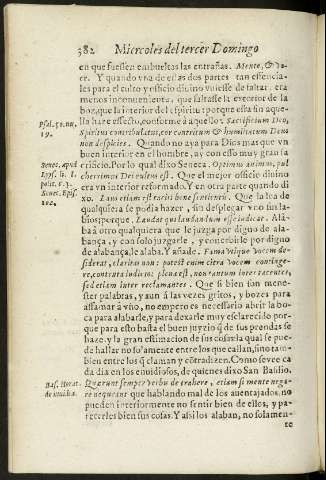 382 Miercoles del tercer Domingo
en que fuessen embueltas las entrañas. Mente, & vo-
ce. Y quando vna de estas dos partes tan essencia-
les para el culto y oficio diuino vuiesse de faltar, era
menos inconueniente, que faltasse la exterior de la
boz, que la interior del espiritu: porque essa sin aque-
lla haze efecto, conforme à aquello: Sacrificium Deo,
Spiritus contribulatus, cor contritum & humiliatum Deus
non despicies. Quando no aya para Dios mas que vn
buen interior en el hombre, ay con esso muy gran sa
crificio. Por lo qual dixo Seneca. Optimus animus, pul
cherrimus Dei cultus est. Que el mejor officio diuino
era vn interior reformado. Y en otra parte quando di
xo. Laus etiam est taciti bene sentientis. Que la loa de
qualquiera se podia hazer, sin desplegar vno sus la-
bios; porque. Laudat qui laudandum esse iudicat. Ala-
ba à otro qualquiera que le juzga por digno de alaban-
ça, y con solo juzgarle, y concebirle por digno
de alabança, le alaba. Y añade. Fama vtique vocem de-
siderat, claritas non: potest enim citra vocem continge-
re, contenta iudicio: plena est, non tantum inter tacentes,
sed etiam inter reclamantes. Que si bien son mene-
ster palabras, y aun à las vezes gritos, y bozes para
affamar à vno, no empero es necessario abrir la bo-
ca para alabarle, y para dexarle muy esclarecido por-
que para esto basta el buen juyzio q̃ de sus prendas se
haze, y la gran estimacion de sus cosas: la qual se pue-
de hallar no solamente entre los que callan, sino tam-
bien entre los q̃ claman y cõtradizen. Como se vee ca
da dia en los enuidiosos, de quienes dixo San Basilio.
Quærunt semper verbis detrahere, etiam si mente nega-
re nequeant que hablando mal de los auentajados, no
pueden interiormente no sentir bien de ellos, y pa-
recerles bien sus cosas. Y assi los alaban, no solamen-
te
Psal. 50. nu.
19.
Senec. apud
Senec. Epis.
102.
Bas. Homt.
de inuidia.